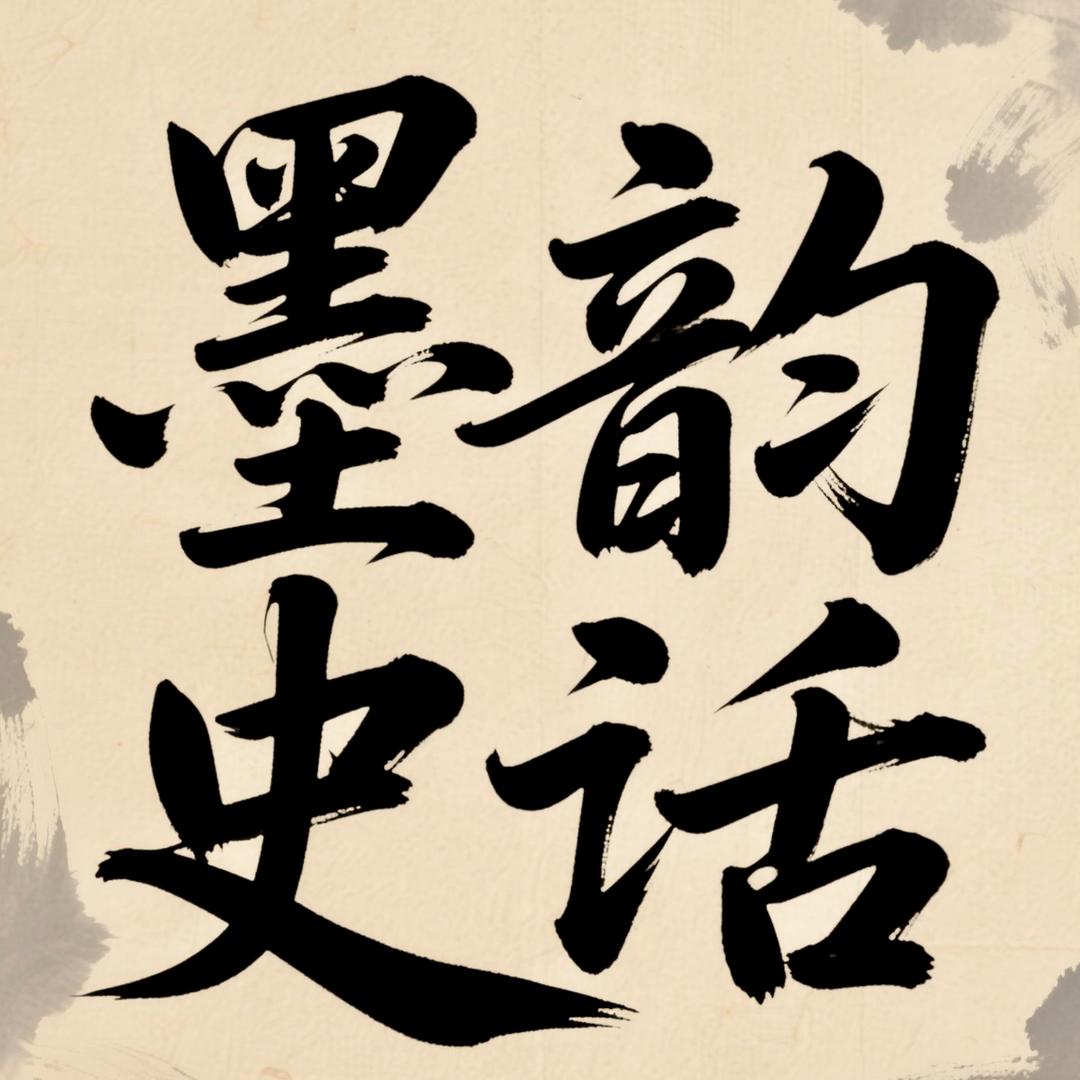 墨韵
史话